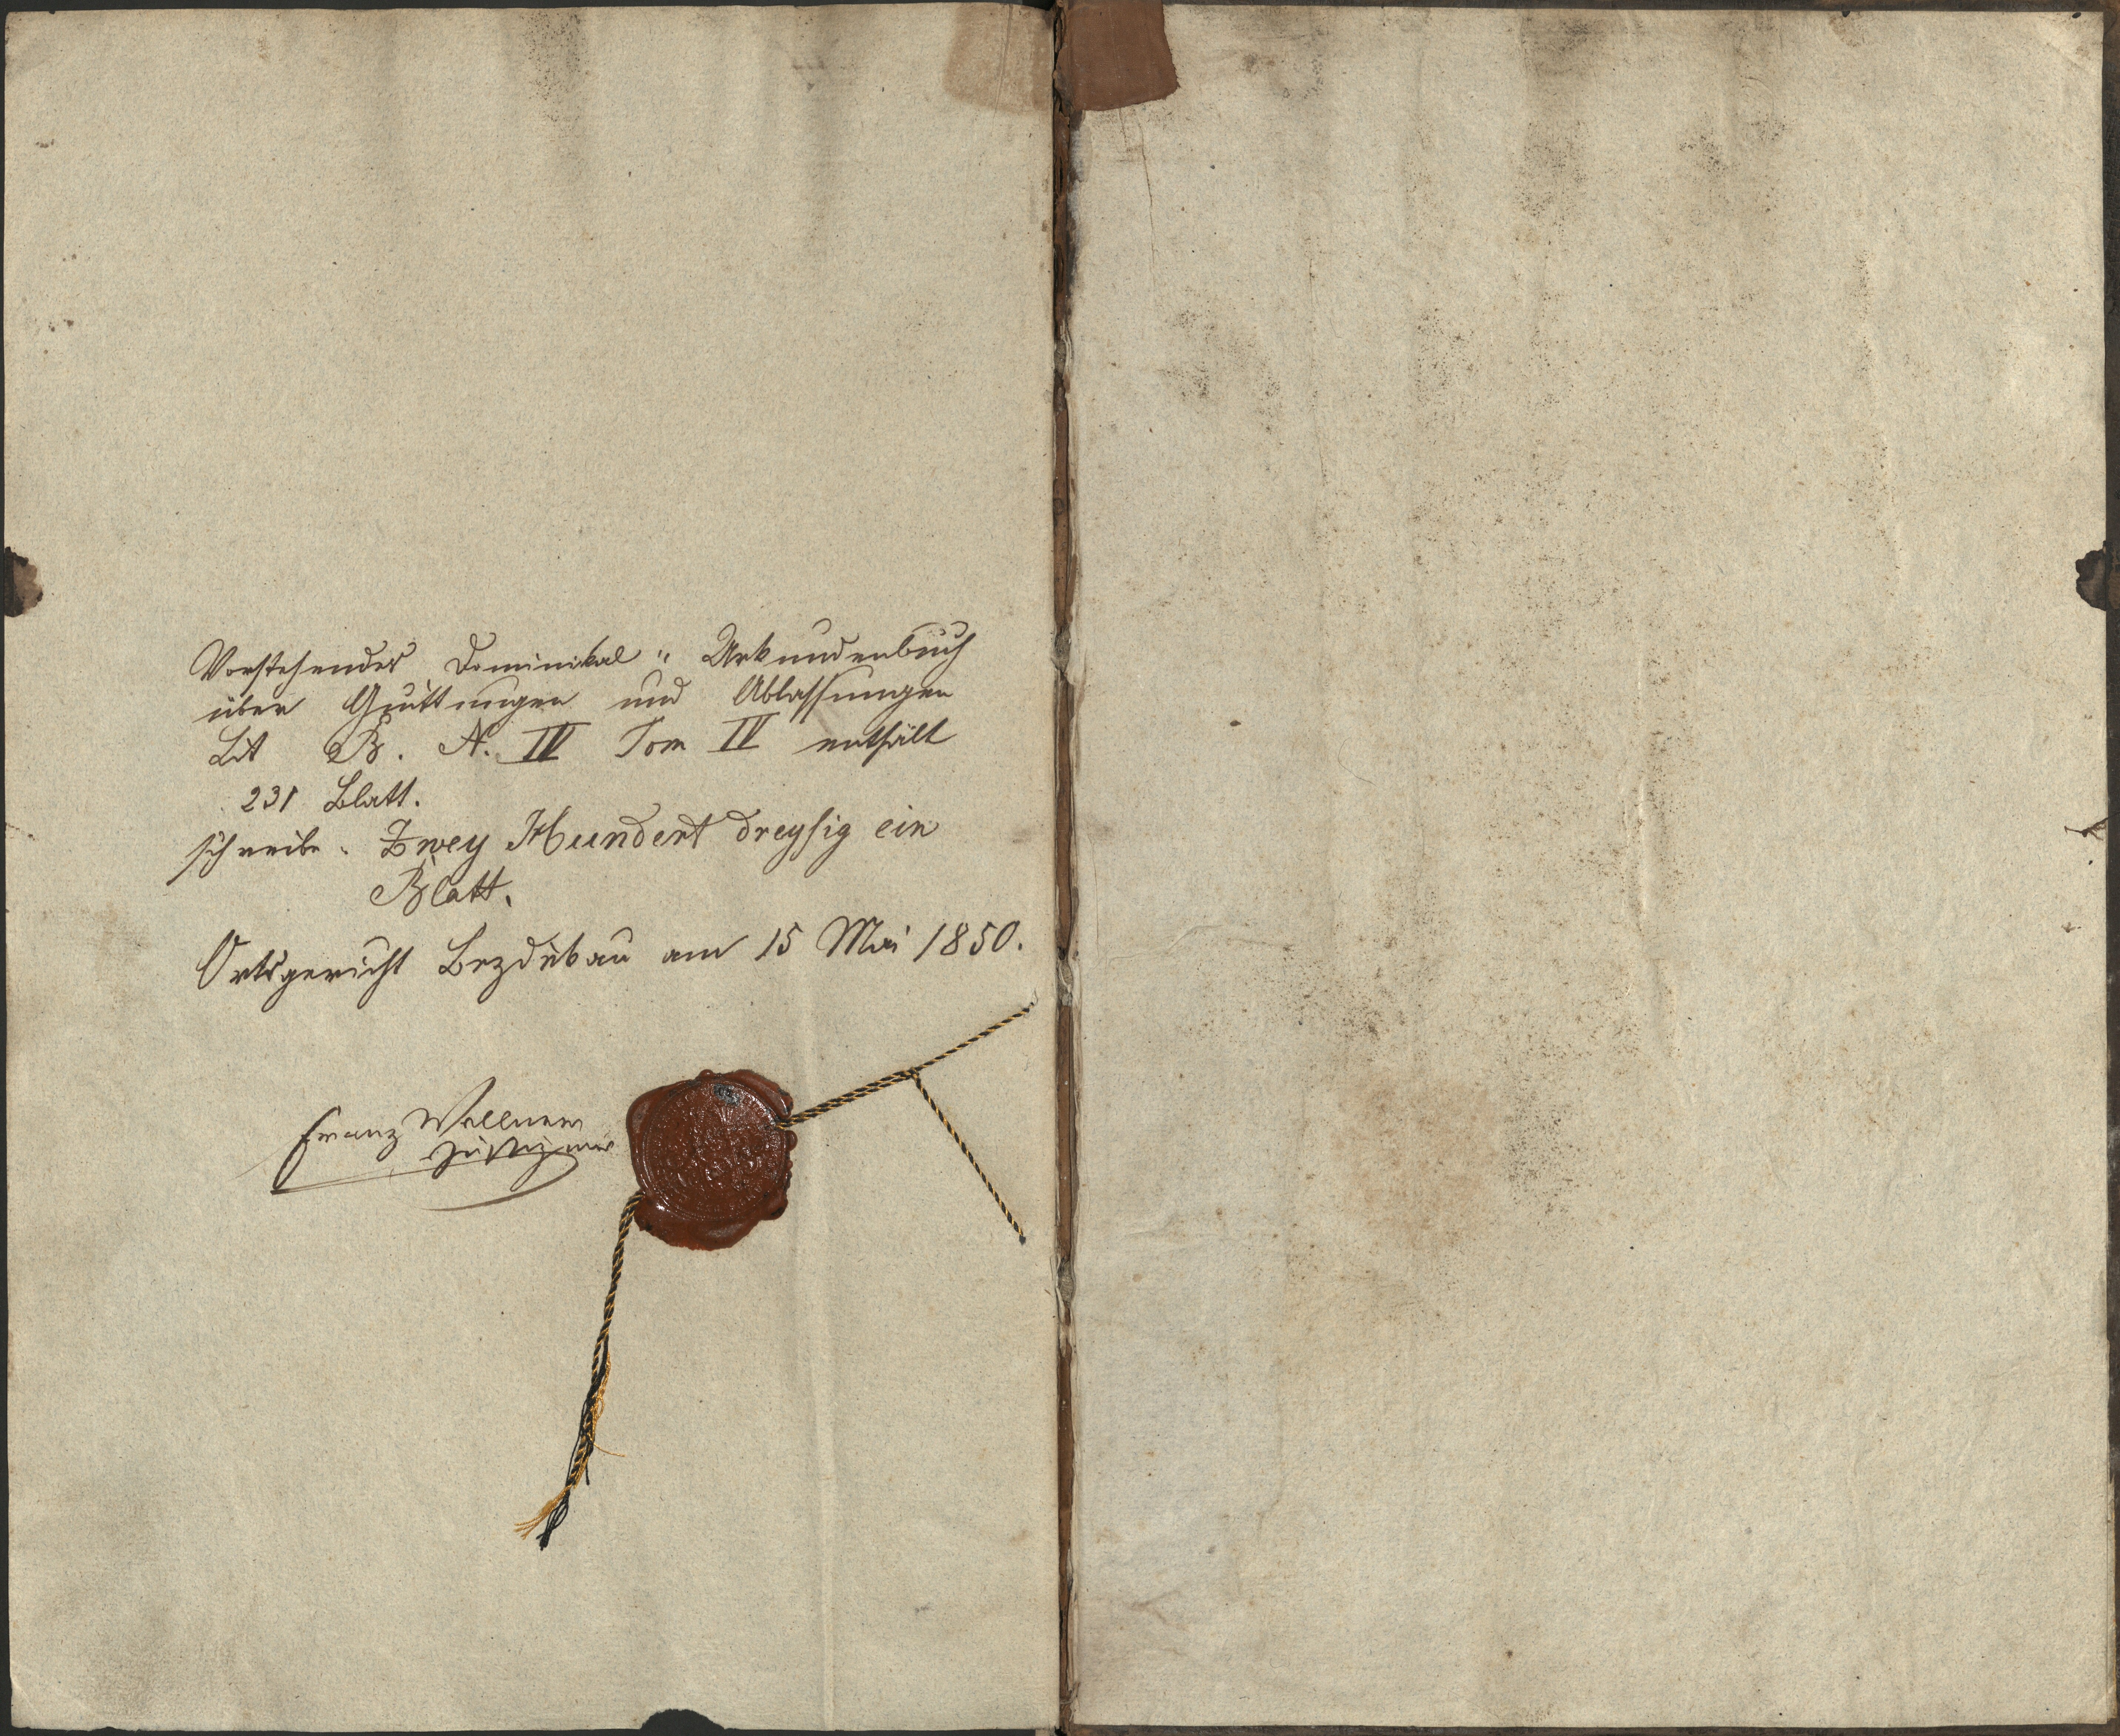 Vorstehendes Dominikal " Urkundenbuch
über Quittungen und Ablassungen
Lit B. N. IV Tom IV enthält
231 Blatt.
schreibe. Zwey Hundert dreysig ein
Blatt.
Ortsgericht Bezdiekau am 15 Mai 1850.
Franz Wellner